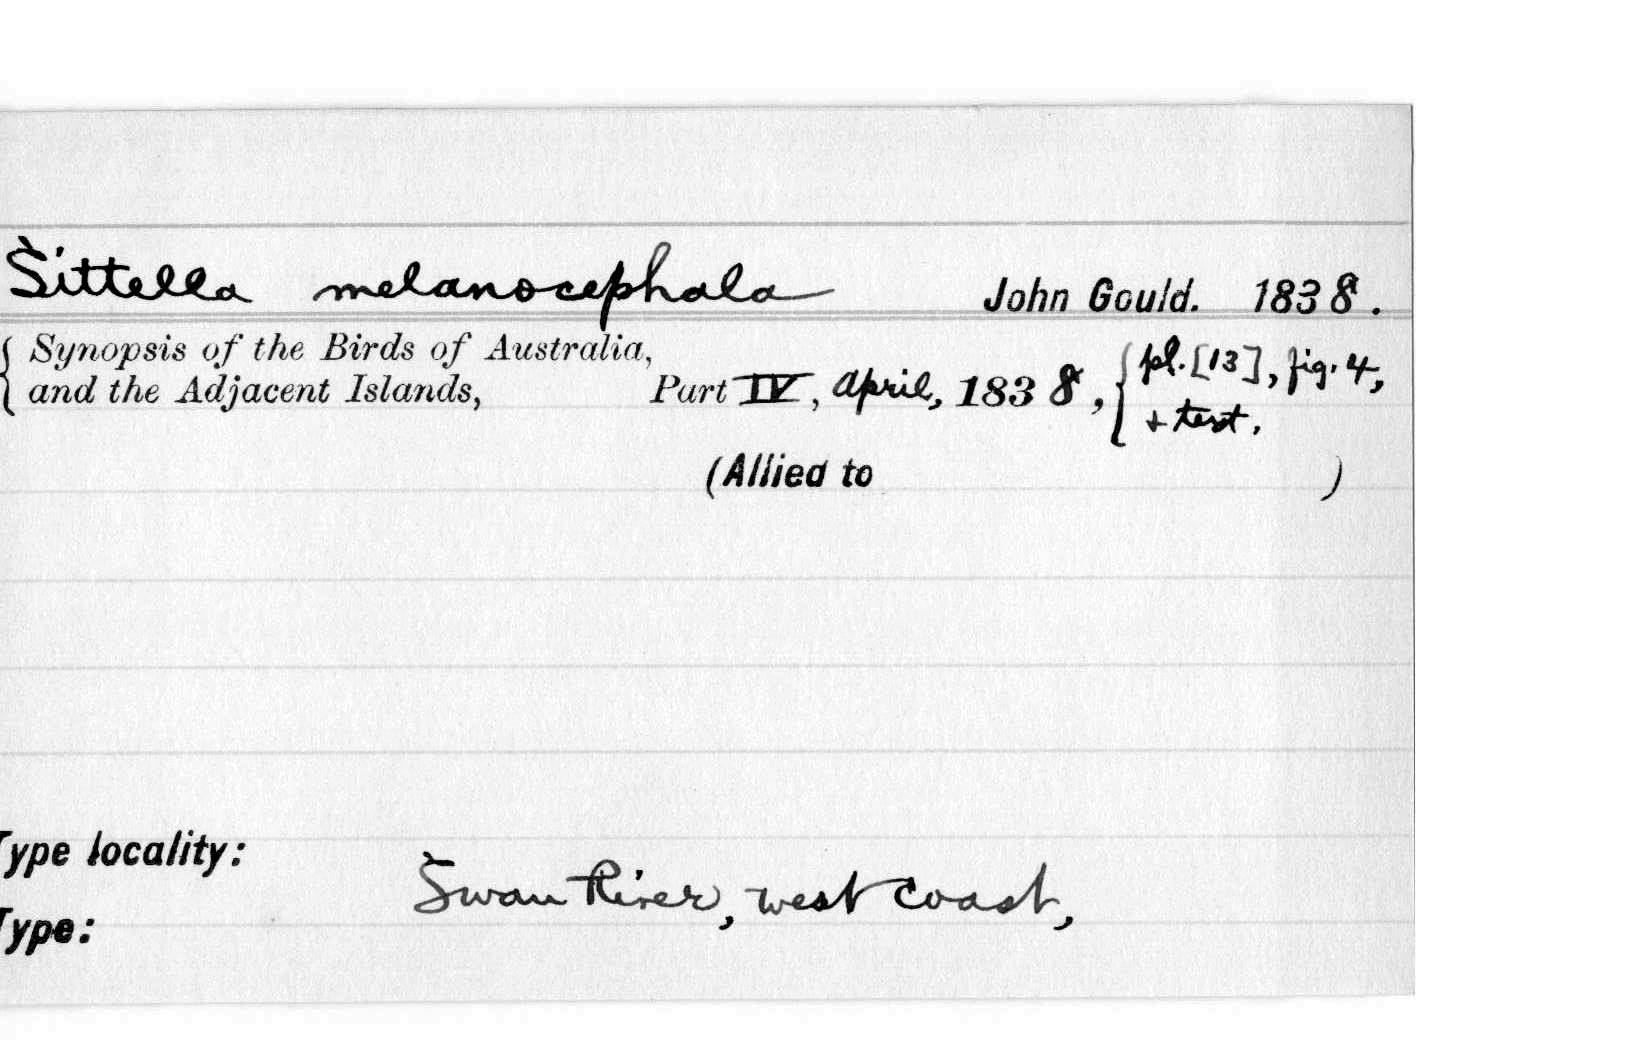 Sittella melanocephala John Gould. 1838.
{ Synopsis of the Birds of Australia,
and the Adjacent Islands, Part IV, April, 1838, { pl. [13], fig. 4,
+ text.
(Allied to )
Type locality:
Swan River, west coast,
Type: